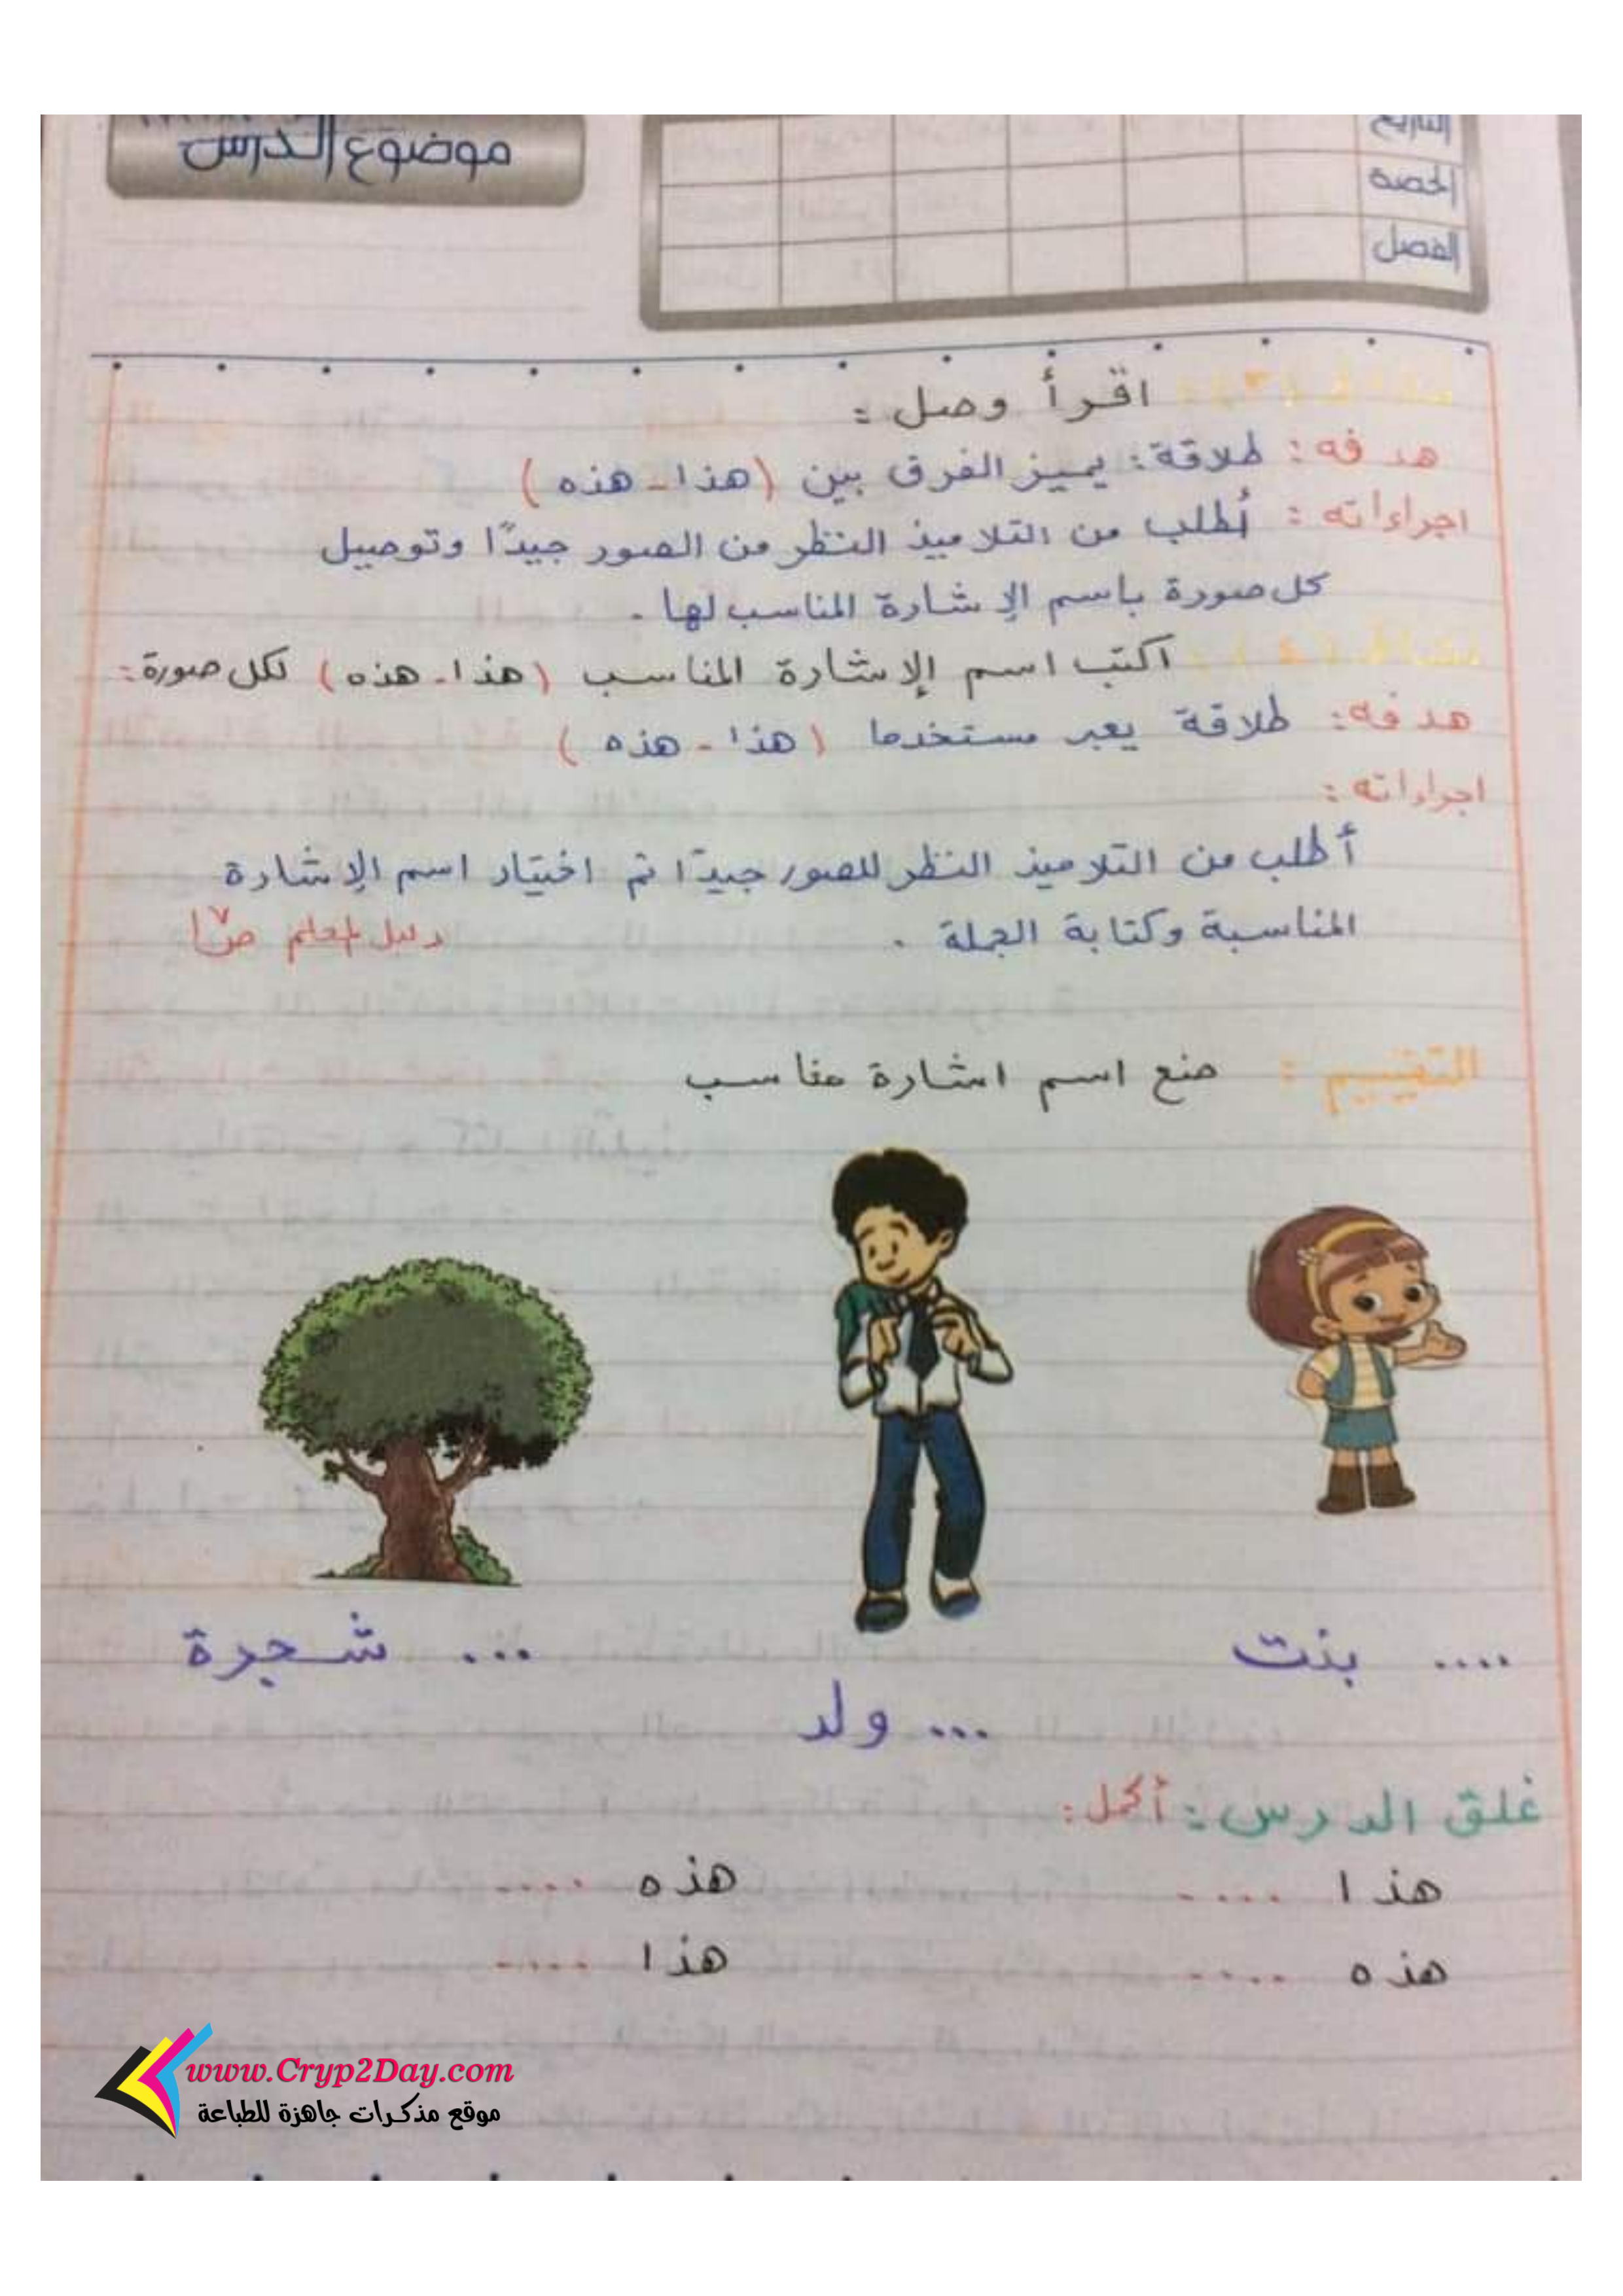 موضوع الدرس
التاريخ
الحصة
الفصل
نشاط (٣): اقرأ وصل :
هدفه: طلاقة: يميز الفرق بين (هذا - هذه)
اجراءاته : أُطلب من التلاميذ النظر من الصور جيدًا وتوصيل
كل صورة باسم الإشارة المناسب لها .
نشاط (٤): اكتب اسم الإشارة المناسب (هذا - هذه) لكل صورة:
هدفه: طلاقة يعبر مستخدما (هذا - هذه)
اجراءاته :
أطلب من التلاميذ النظر للصور جيدًا ثم اختيار اسم الإشارة
المناسبة وكتابة الجملة .
دليل المعلم
التقييم : ضع اسم اشارة مناسب
.... بنت
... ولد
... شجرة
غلق الدرس: أكمل:
هذا ..... هذه .....
هذه ..... هذا .....
www.Cryp2Day.com
موقع مذكرات جاهزة للطباعة